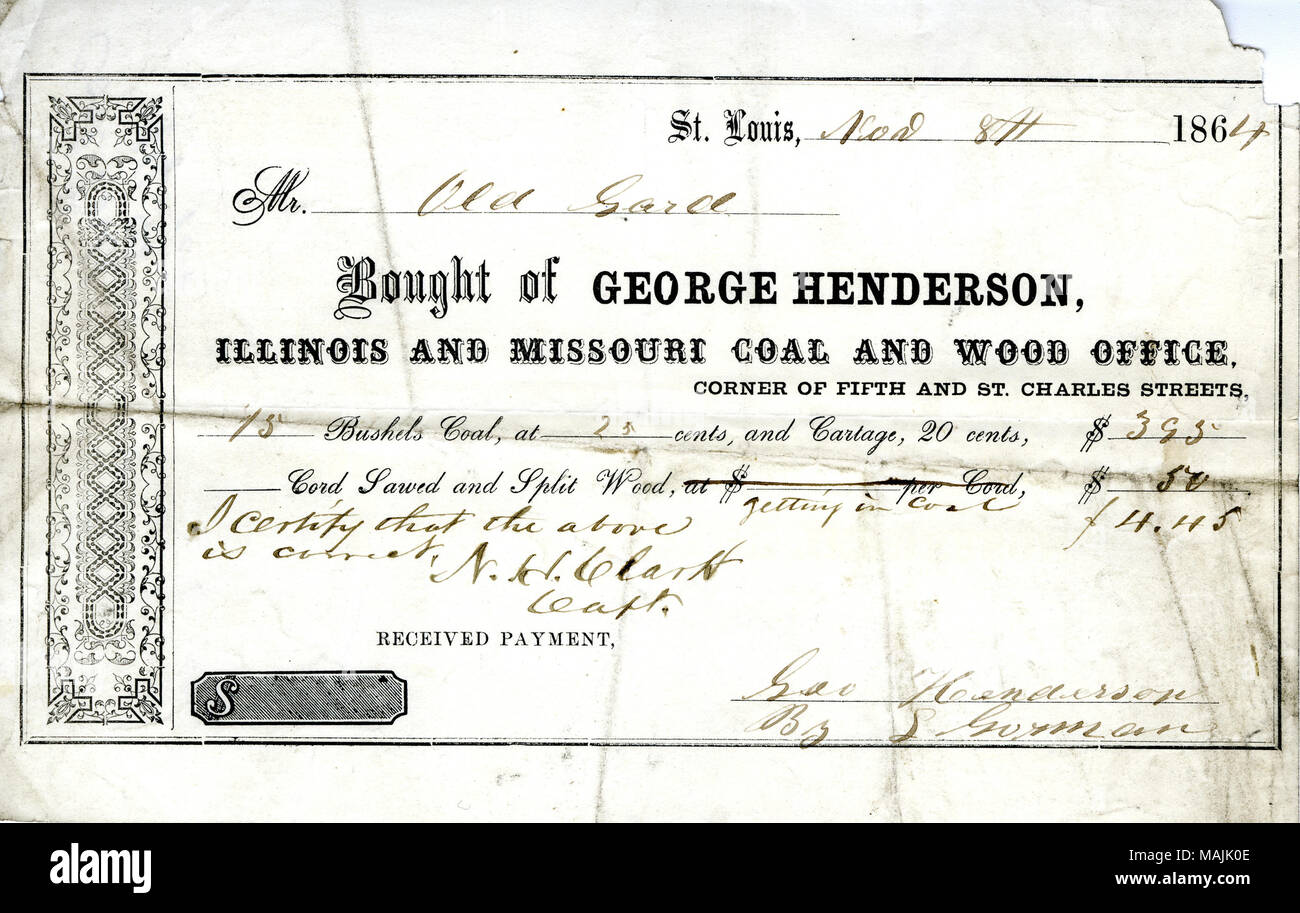 St. Louis, Nov 8th 1864
Mr. Old Gard
Bought of GEORGE HENDERSON,
ILLINOIS AND MISSOURI COAL AND WOOD OFFICE,
CORNER OF FIFTH AND ST. CHARLES STREETS,
15 Bushels Coal, at 25 cents, and Cartage, 20 cents, $ 395
Cord Sawed and Split Wood, at $ per Cord, $ 50
getting in Coal
$4.45
I certify that the above
is correct.
N. H. Clark
Capt.
RECEIVED PAYMENT,
$
Geo Henderson
By S Gorman
alamy
a
alamy
a
a
alamy
a
alamy
Image ID: MAJK0E
www.alamy.com